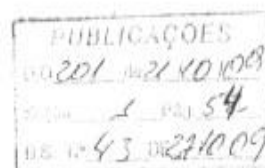 PUBLICAÇÕES
D.O. 201 de 21/10/09
1 Pág 54
B.S. nº 43 de 27/10/09